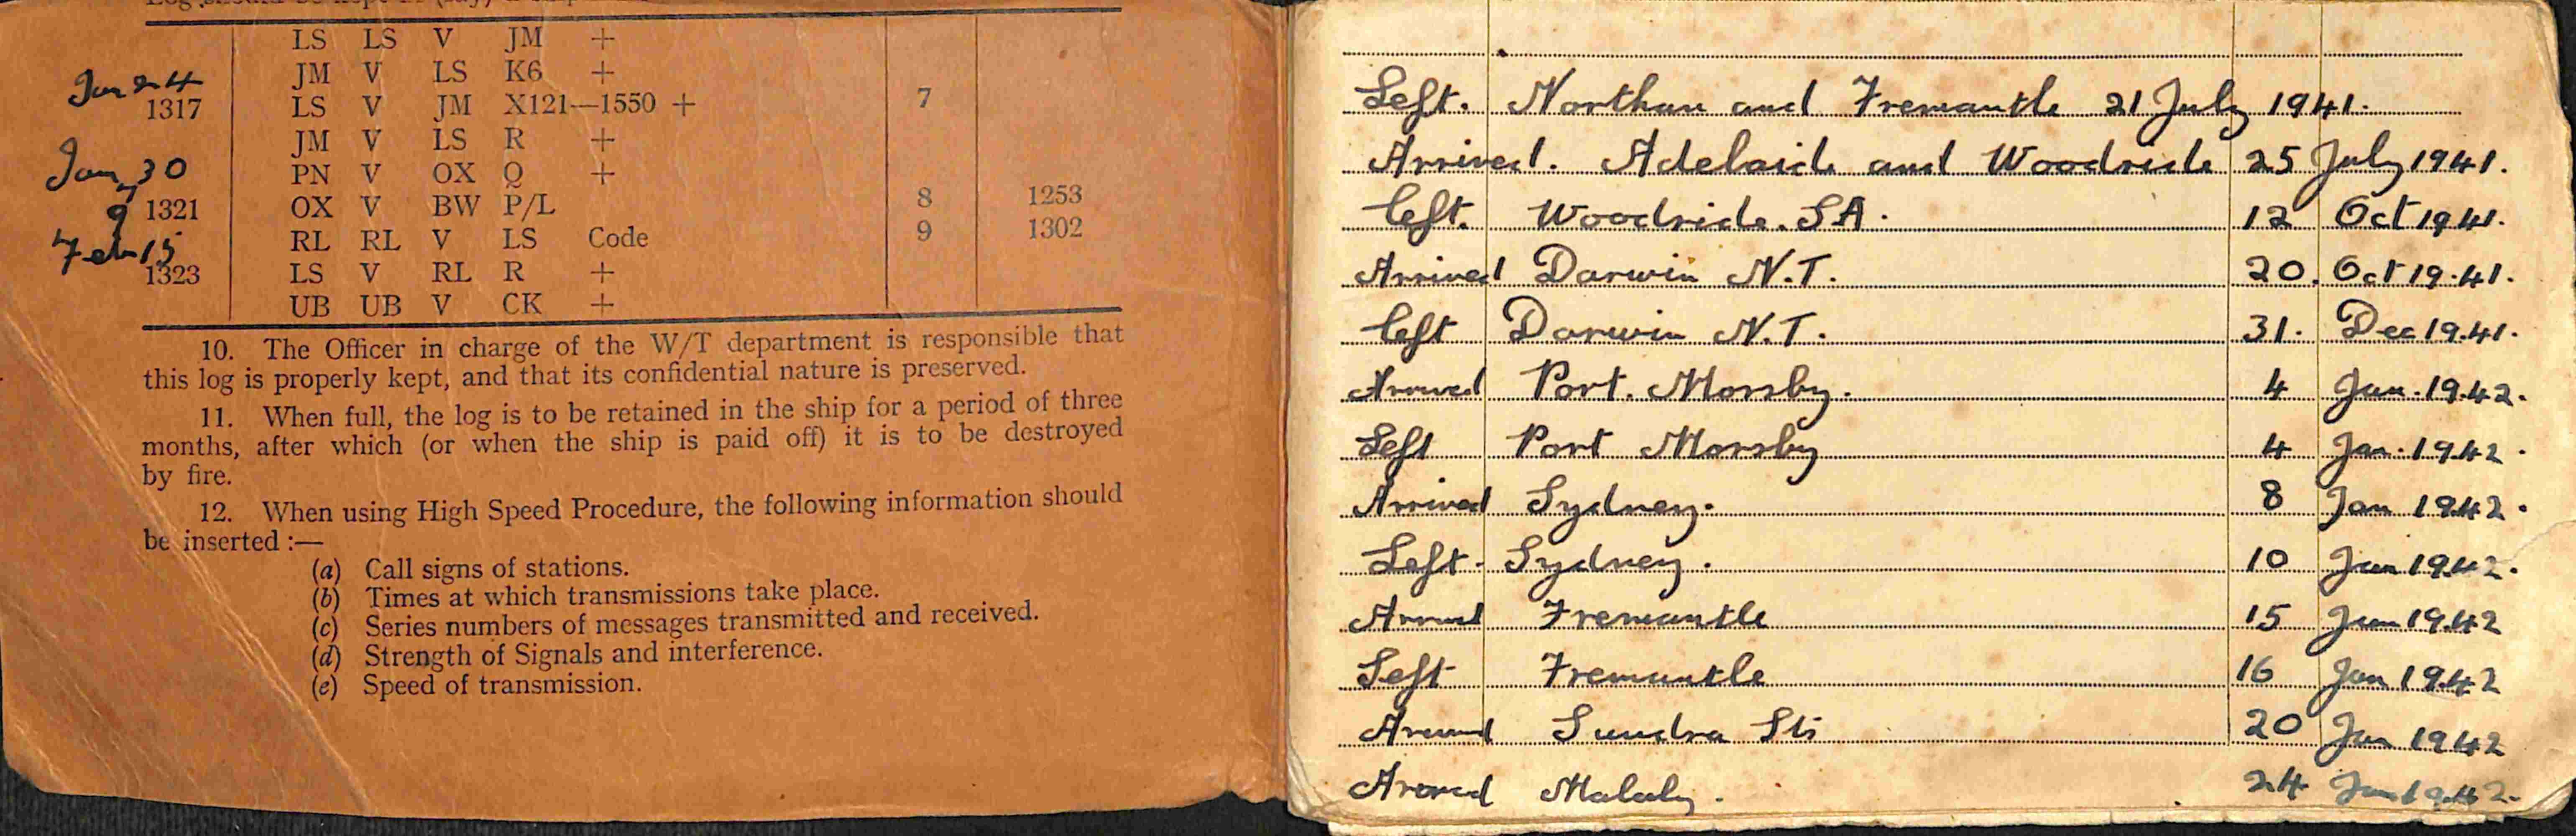 LS LS V JM +
JM V LS K6 +
Jan 24
1317 LS V JM X121—1550 + 7
JM V LS R +
Jan 30
PN V OX Q +
9 1321 OX V BW P/L 8 1253
RL RL V LS Code 9 1302
Feb 15
1323 LS V RL R +
UB UB V CK +
10. The Officer in charge of the W/T department is responsible that
this log is properly kept, and that its confidential nature is preserved.
11. When full, the log is to be retained in the ship for a period of three
months, after which (or when the ship is paid off) it is to be destroyed
by fire.
12. When using High Speed Procedure, the following information should
be inserted :—
(a) Call signs of stations.
(b) Times at which transmissions take place.
(c) Series numbers of messages transmitted and received.
(d) Strength of Signals and interference.
(e) Speed of transmission.
Left. Northam and Fremantle 21 July 1941.
Arrived. Adelaide and Woodside 25 July 1941.
left. Woodside. SA. 12 Oct 1941.
Arrived Darwin N.T. 20. Oct 19.41.
left Darwin N.T. 31. Dec 19.41.
Arrived Port. Morsby. 4 Jan. 19.42.
Left Port Morsby 4 Jan. 19.42.
Arrived Sydney. 8 Jan 1942.
Left. Sydney. 10 Jan 1942.
Arrived Fremantle 15 Jan 19.42
Left Fremantle 16 Jan 19.42
Arrived Sundra Sts 20 Jan 1942
Arrived 24 Jan 1942.